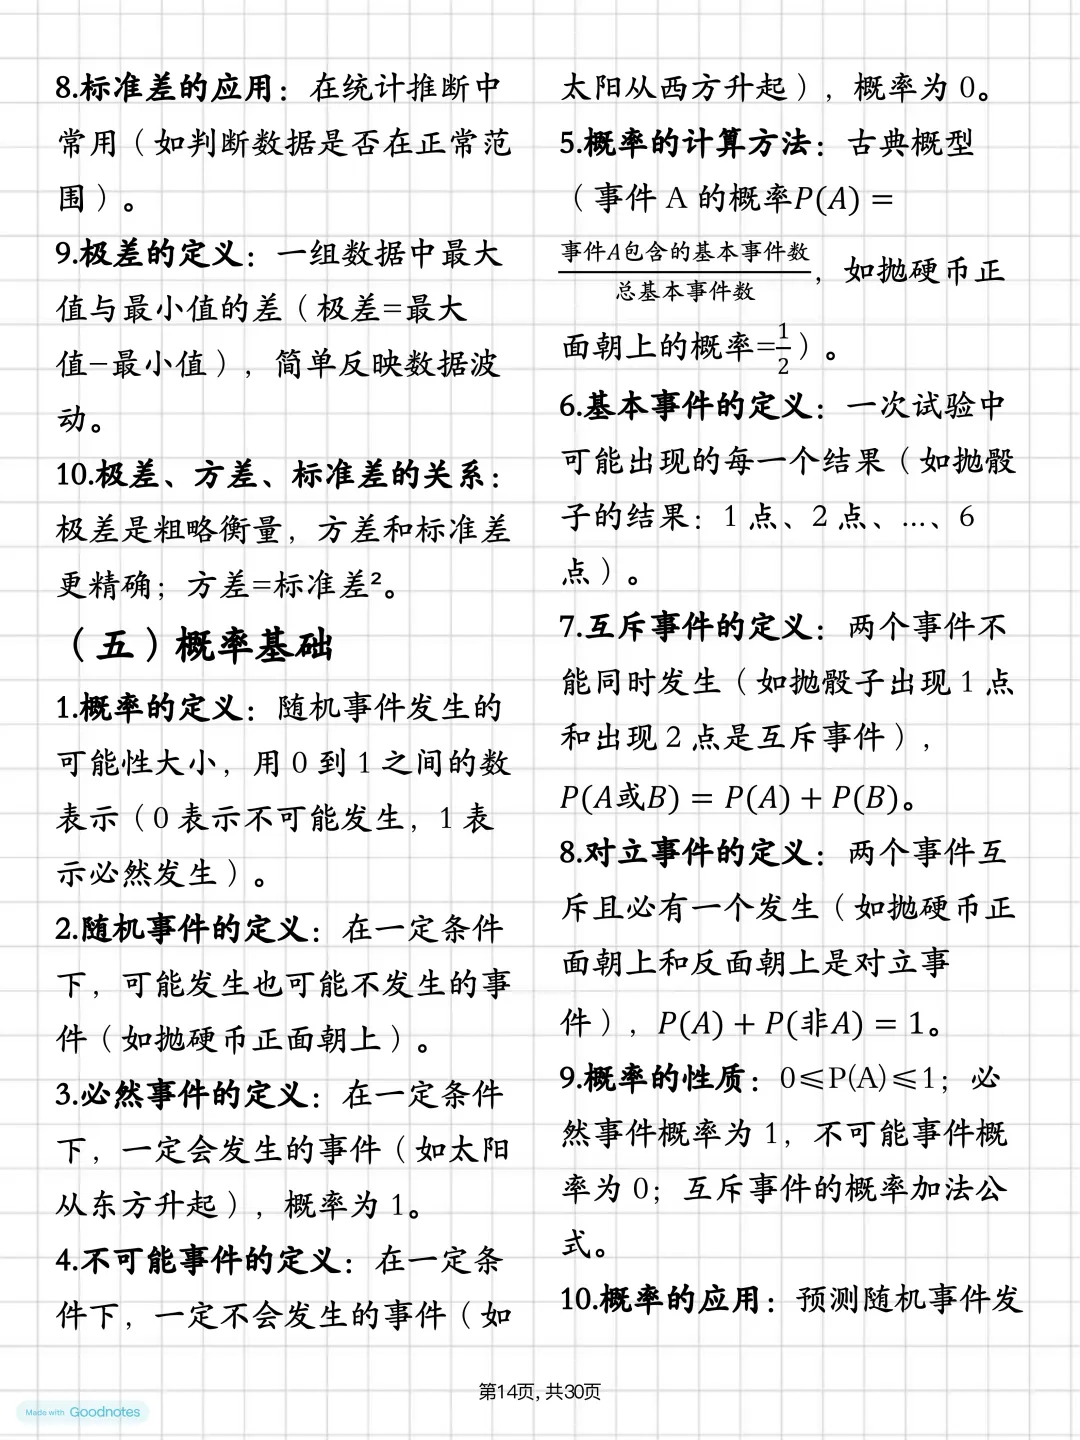 8.标准差的应用：在统计推断中
常用（如判断数据是否在正常范
围）。
9.极差的定义：一组数据中最大
值与最小值的差（极差=最大
值−最小值），简单反映数据波
动。
10.极差、方差、标准差的关系：
极差是粗略衡量，方差和标准差
更精确；方差=标准差²。
（五）概率基础
1.概率的定义：随机事件发生的
可能性大小，用 0 到 1 之间的数
表示（0 表示不可能发生，1 表
示必然发生）。
2.随机事件的定义：在一定条件
下，可能发生也可能不发生的事
件（如抛硬币正面朝上）。
3.必然事件的定义：在一定条件
下，一定会发生的事件（如太阳
从东方升起），概率为 1。
4.不可能事件的定义：在一定条
件下，一定不会发生的事件（如
太阳从西方升起），概率为 0。
5.概率的计算方法：古典概型
（事件 A 的概率P(A) =
事件A包含的基本事件数/总基本事件数，如抛硬币正
面朝上的概率=1/2）。
6.基本事件的定义：一次试验中
可能出现的每一个结果（如抛骰
子的结果：1 点、2 点、…、6
点）。
7.互斥事件的定义：两个事件不
能同时发生（如抛骰子出现 1 点
和出现 2 点是互斥事件），
P(A或B) = P(A) + P(B)。
8.对立事件的定义：两个事件互
斥且必有一个发生（如抛硬币正
面朝上和反面朝上是对立事
件），P(A) + P(非A) = 1。
9.概率的性质：0⩽P(A)⩽1；必
然事件概率为 1，不可能事件概
率为 0；互斥事件的概率加法公
式。
10.概率的应用：预测随机事件发
第14页, 共30页
Made with Goodnotes